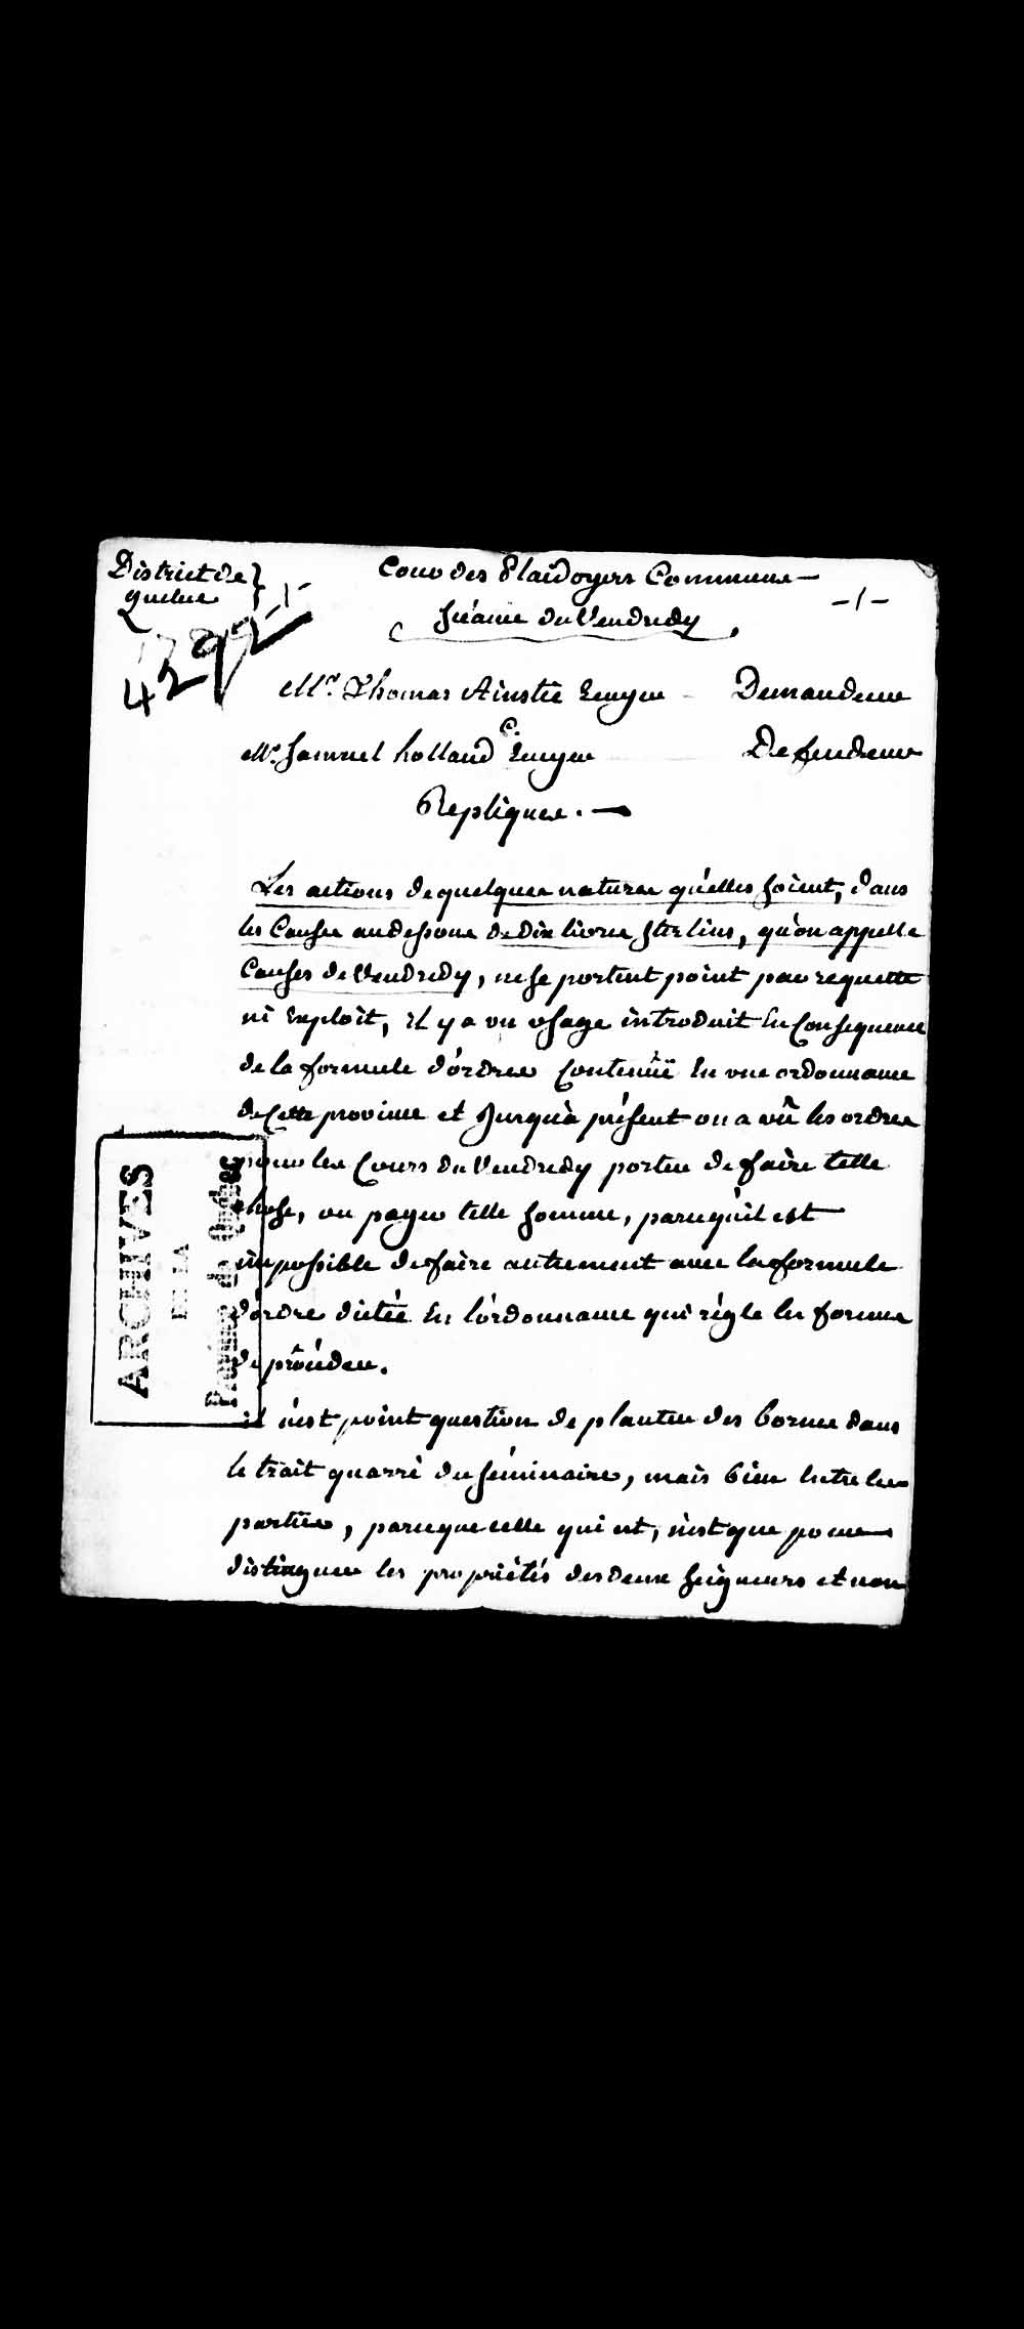 District de }
Quebec
Cour des Plaidoyers Communs —
-1-
Séance du Vendredy
4292
Mr. Thomas Ainslie Ecuyer - Demandeur
C.
Mr. Samuel holland Ecuyer Defendeur
Repliques. —
Les actions de quelques natures qu'elles soient, dans
les Causes audessous de Dix livres Sterlins, qu'on appelle
Causes de Vendredy, ne se portent point par requette
ni Exploit, il y a un usage introduit En Consequence
de la formule d'ordres Contenüe En une ordonnance
de Cette province et Jusqu'à présent on a vû les ordres
pour les Cours du Vendredy porter de faire telle
chose, ou payer telle somme, parcequ'il est
impossible de faire autrement avec la formule
d'ordre dictée En l'ordonnance qui règle les formes
de procéder.
il n'est point question de planter des bornes dans
le trait quarré du séminaire, mais bien Entre les
parties, parceque celle qui est, n'est que pour
distinguer les propriétés des deux seigneurs et non
ARCHIVES
DE LA
Province de Québec